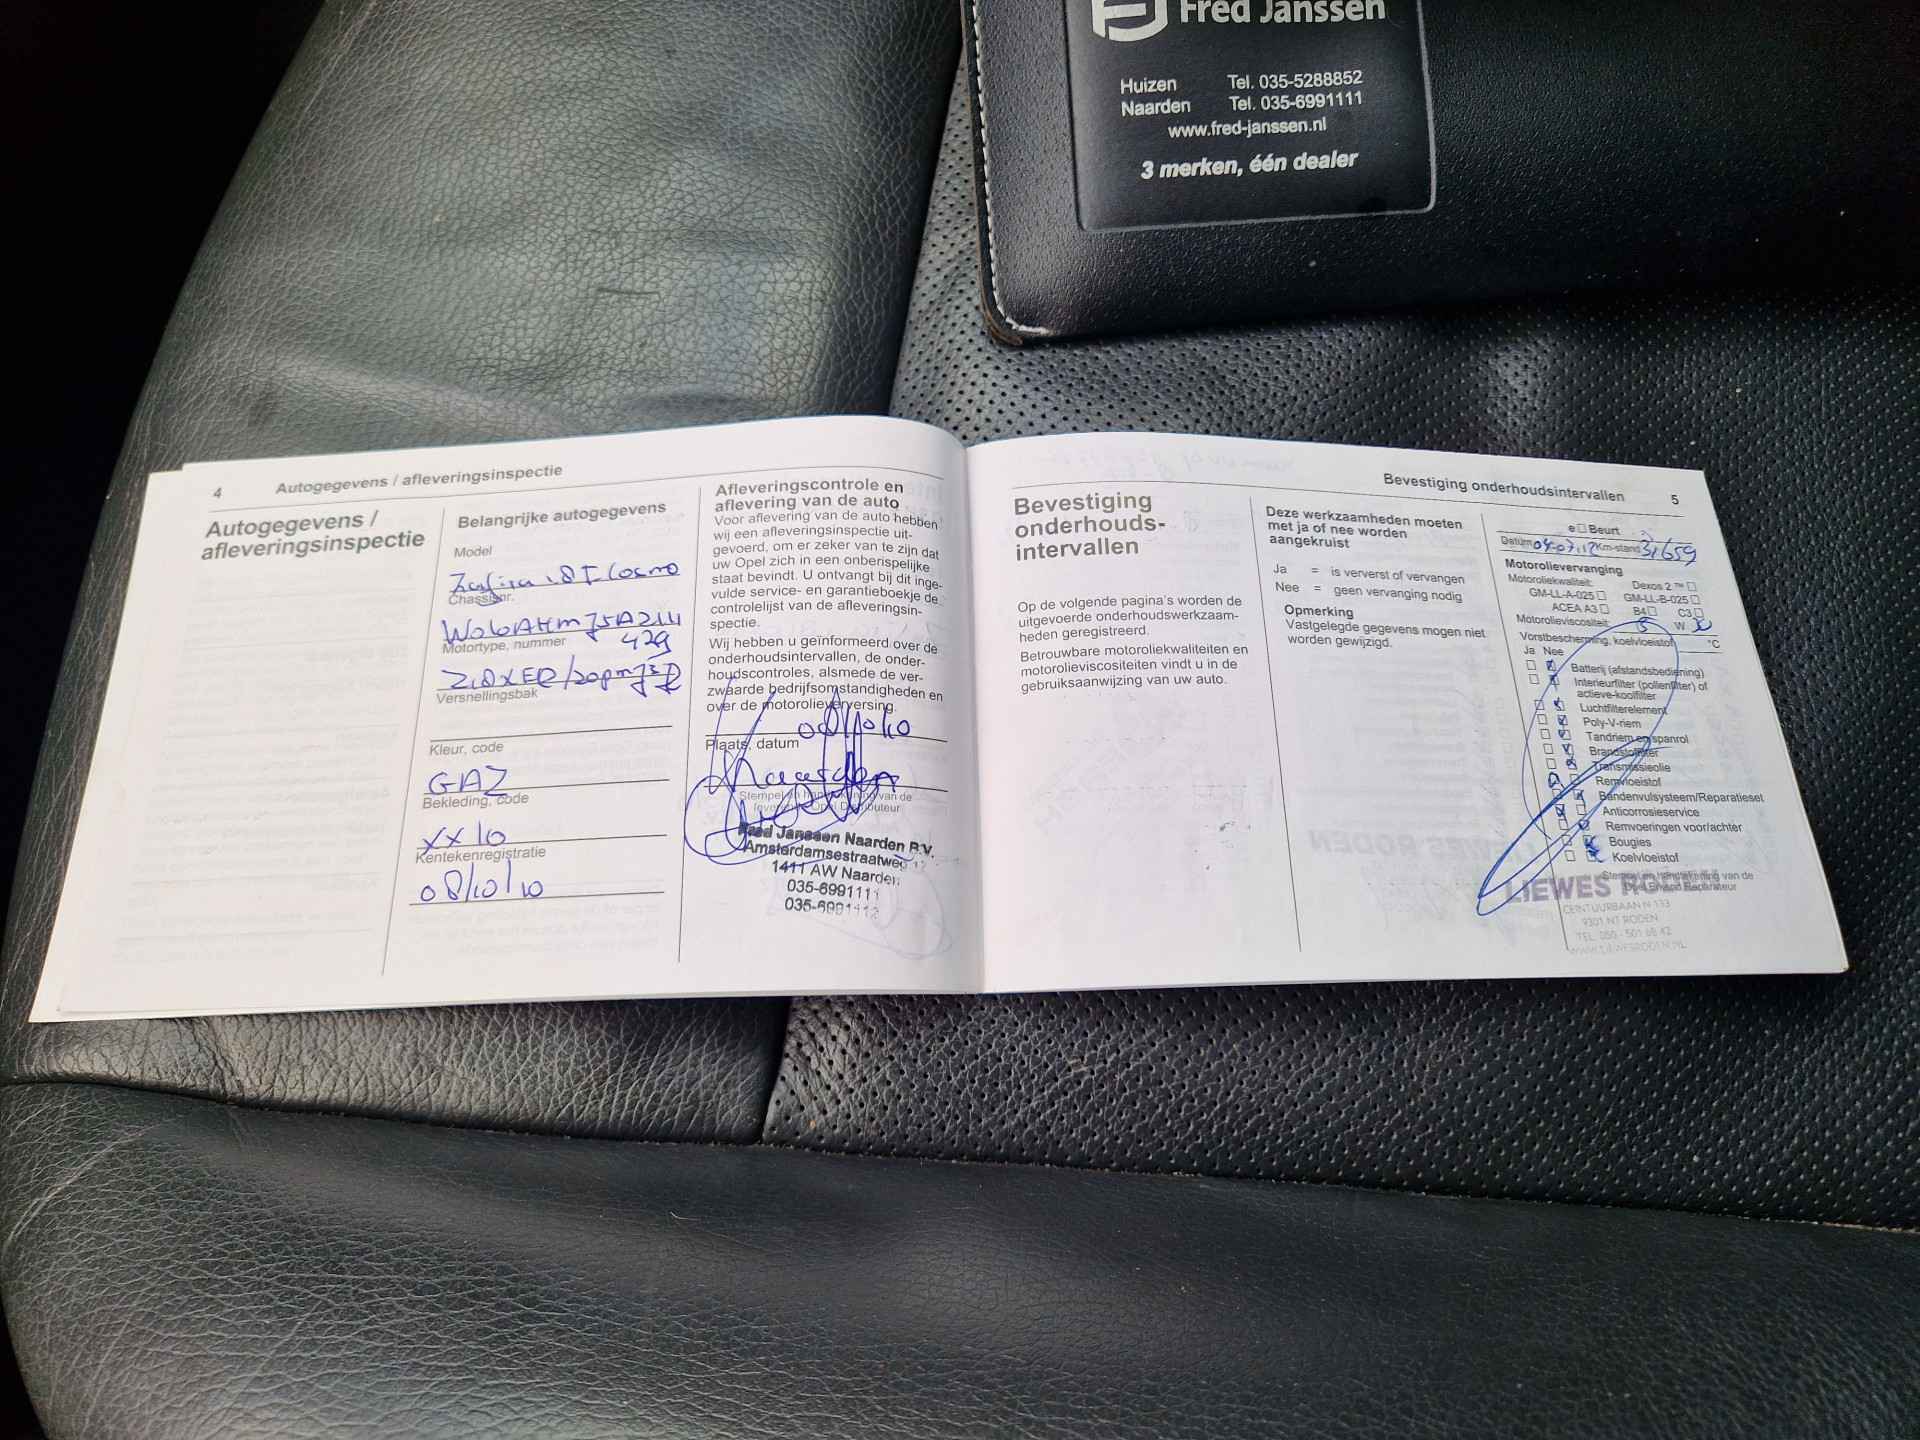 Fred Janssen
Huizen Tel. 035-5288852
Naarden Tel. 035-6991111
www.fred-janssen.nl
3 merken, één dealer
4 Autogegevens / afleveringsinspectie
Autogegevens /
afleveringsinspectie
Belangrijke autogegevens
Model
Zafira 1.8 I Cosmo
Chassisnr.
Motortype, nummer
Versnellingsbak
Kleur, code
GAZ
Bekleding, code
xx10
Kentekenregistratie
08/10/10
Afleveringscontrole en
aflevering van de auto
Voor aflevering van de auto hebben
wij een afleveringsinspectie uit-
gevoerd, om er zeker van te zijn dat
uw Opel zich in een onberispelijke
staat bevindt. U ontvangt bij dit inge-
vulde service- en garantieboekje de
controlelijst van de afleveringsin-
spectie.
Wij hebben u geïnformeerd over de
onderhoudsintervallen, de onder-
houdscontroles, alsmede de ver-
zwaarde bedrijfsomstandigheden en
over de motorolieverversing.
08/10/10
Plaats, datum
Naarden
Stempel en handtekening van de
leverende Opel Distributeur
Fred Janssen Naarden B.V.
Amsterdamsestraatweg 12
1411 AW Naarden
035-6991111
035-6991112
Bevestiging onderhoudsintervallen 5
Bevestiging
onderhouds-
intervallen
Op de volgende pagina's worden de
uitgevoerde onderhoudswerkzaam-
heden geregistreerd.
Betrouwbare motoroliekwaliteiten en
motorolieviscositeiten vindt u in de
gebruiksaanwijzing van uw auto.
Deze werkzaamheden moeten
met ja of nee worden
aangekruist
Ja = is ververst of vervangen
Nee = geen vervanging nodig
Opmerking
Vastgelegde gegevens mogen niet
worden gewijzigd.
e Beurt
Datum 04-07-12 Km-stand 31659
Motorolievervanging
Motoroliekwaliteit: Dexos 2 ™
GM-LL-A-025 GM-LL-B-025
ACEA A3 B4 C3
Motorolieviscositeit: 5 W
Vorstbescherming, koelvloeistof °C
Ja Nee
Batterij (afstandsbediening)
Interieurfilter (pollenfilter) of
actieve-koolfilter
Luchtfilterelement
Poly-V-riem
Tandriem en spanrol
Brandstoffilter
Transmissieolie
Remvloeistof
Bandenvulsysteem/Reparatieset
Anticorrosieservice
Remvoeringen voor/achter
Bougies
Koelvloeistof
Stempel en handtekening van de
Opel Erkend Reparateur
LIEWES RODEN
CEINTUURBAAN N 133
9301 NT RODEN
TEL. 050 - 501 68 42
WWW.LIEWESRODEN.NL